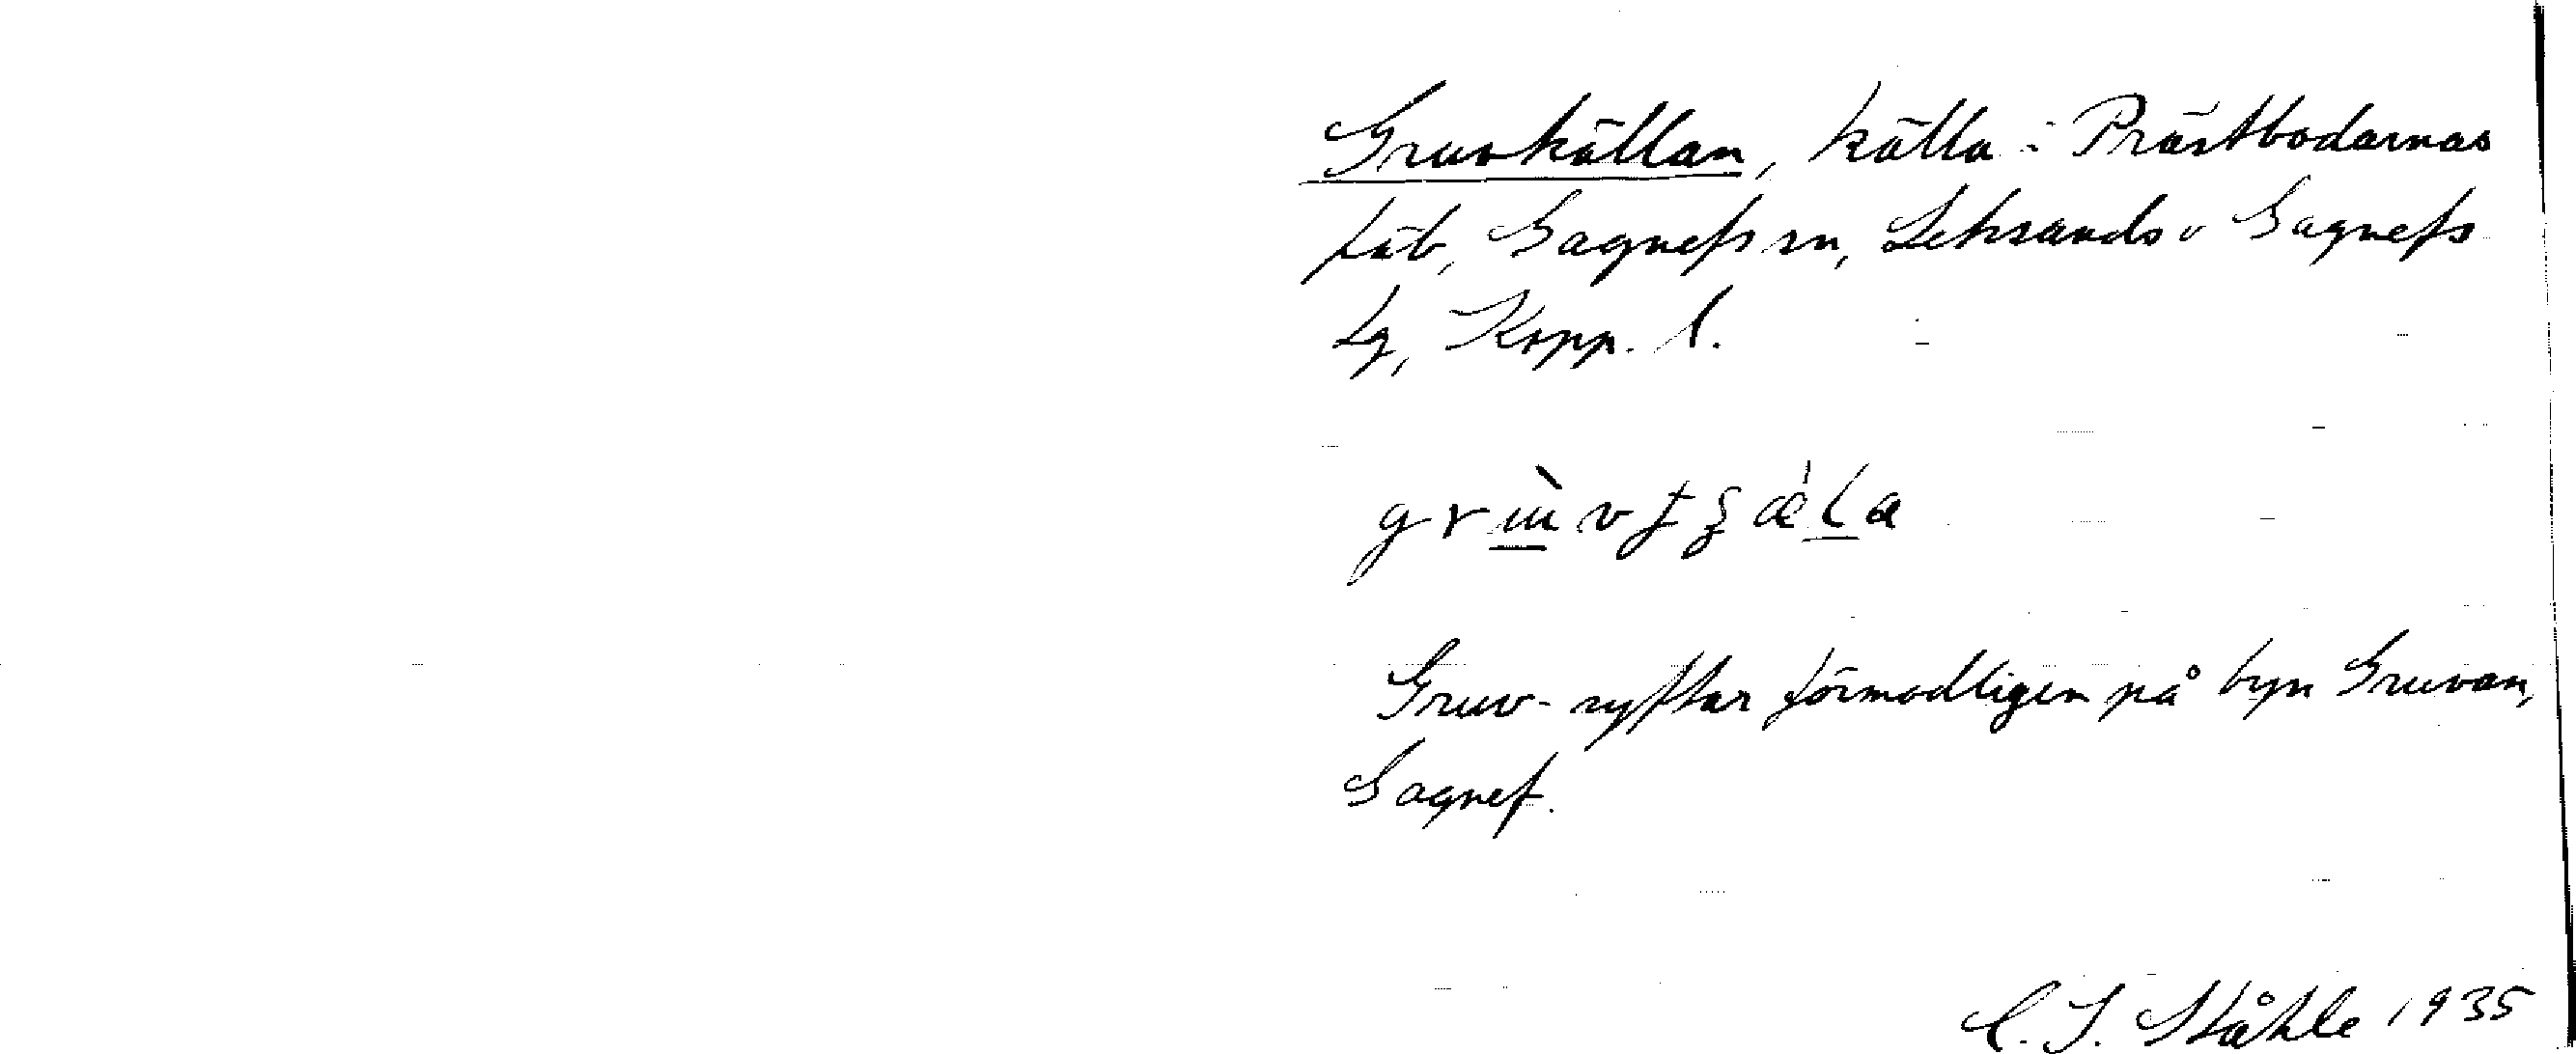 Gruvkällan, källa i Prästbodarnas
fäb, Gagnefs sn, Leksands o Gagnefs
tg, Kopp. l.
Gruv- syftar förmodligen på byn Gruvan,
Gagnef.
C. I. Ståhle 1935